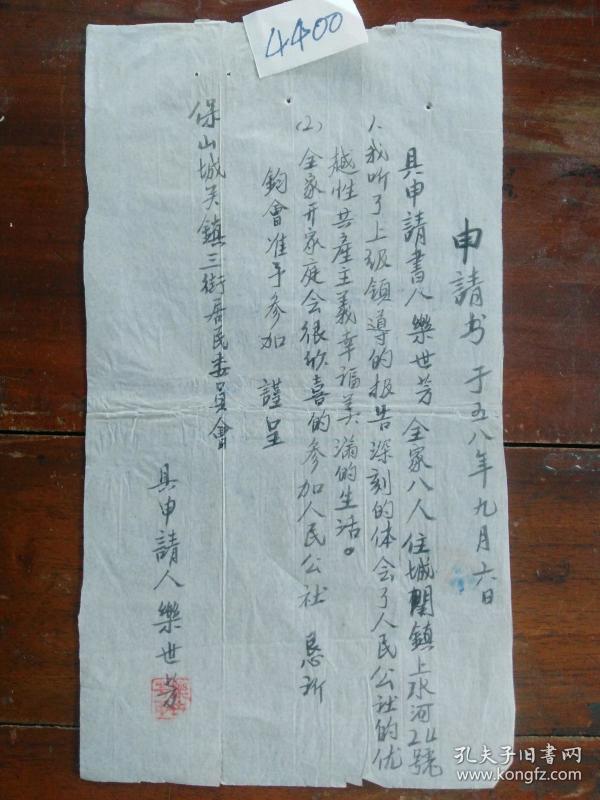 4400
申請书 于五八年九月六日
具申請書人樂世芳 全家八人 住城關鎮上水河24號
1、我听了上级領導的报告深刻的体会了人民公社的优
越性共產主義幸福美满的生活。
(2) 全家开家庭会很欣喜的参加人民公社 恳祈
鈞會准予参加 謹呈
保山城关鎮三街居民委員會
具申請人樂世芳
孔夫子旧书网
www.kongfz.com